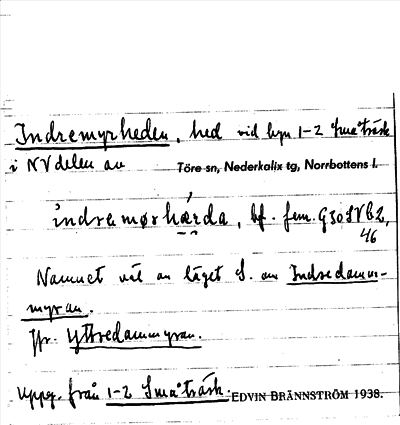 Indremyrheden, hed vid byn 1-2 Småträsk
i NVdelen av Töre sn, Nederkalix tg, Norrbottens l.
indremørhærda, bf. fem. G30SVb2,
46
Namnet väl av läget S. om Indredamm-
myran.
Jfr. Yttredammyran.
Uppg. från 1-2 Småträsk. EDVIN BRÄNNSTRÖM 1938.